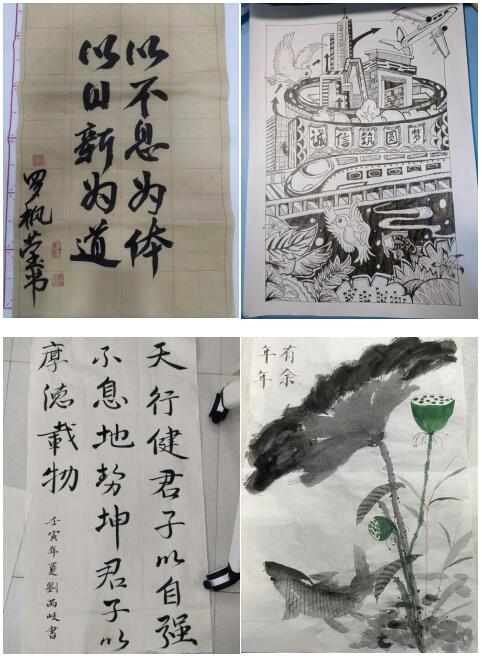 以不息为体
以日新为道
罗枫书
诚信筑圆梦
天行健君子以自强
不息地势坤君子以
厚德載物
壬寅年夏劉岐書
有余
年年